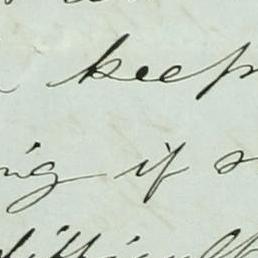 keep
ing if
difficult